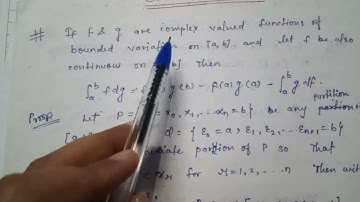 # If f & g are complex valued functions of
bounded variation on [a, b] and let f be also
continuous on b] Then
∫ₐᵇ f dg = g(b) - f(a) g(a) - ∫ₐᵇ g df.
partition
Proof Let P = x₀, x₁, ... xₙ = b} Be any
[a = {ε₀ = a, ε₁, ε₂, ... εₙ₊₁ = b}
partion of P So that
for r = 1, 2, ... n Then